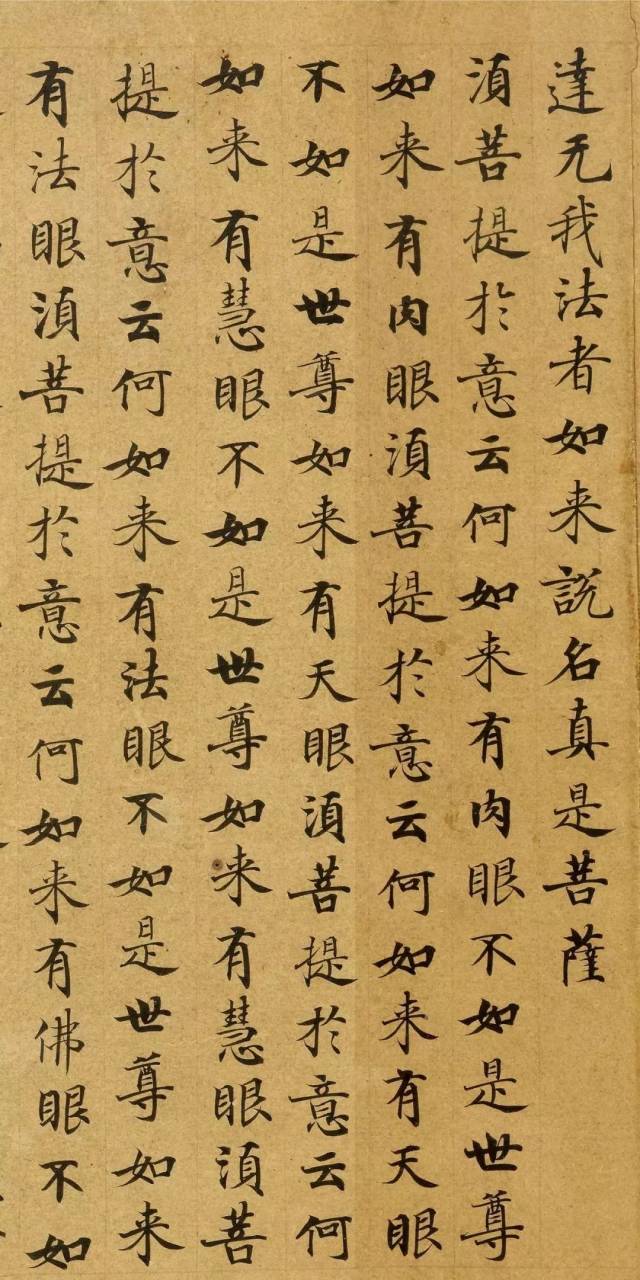 達无我法者如来說名真是菩薩
湏菩提於意云何如来有肉眼不如是世尊
如来有肉眼湏菩提於意云何如来有天眼
不如是世尊如来有天眼湏菩提於意云何
如来有慧眼不如是世尊如来有慧眼湏菩
提於意云何如来有法眼不如是世尊如来
有法眼湏菩提於意云何如来有佛眼不如